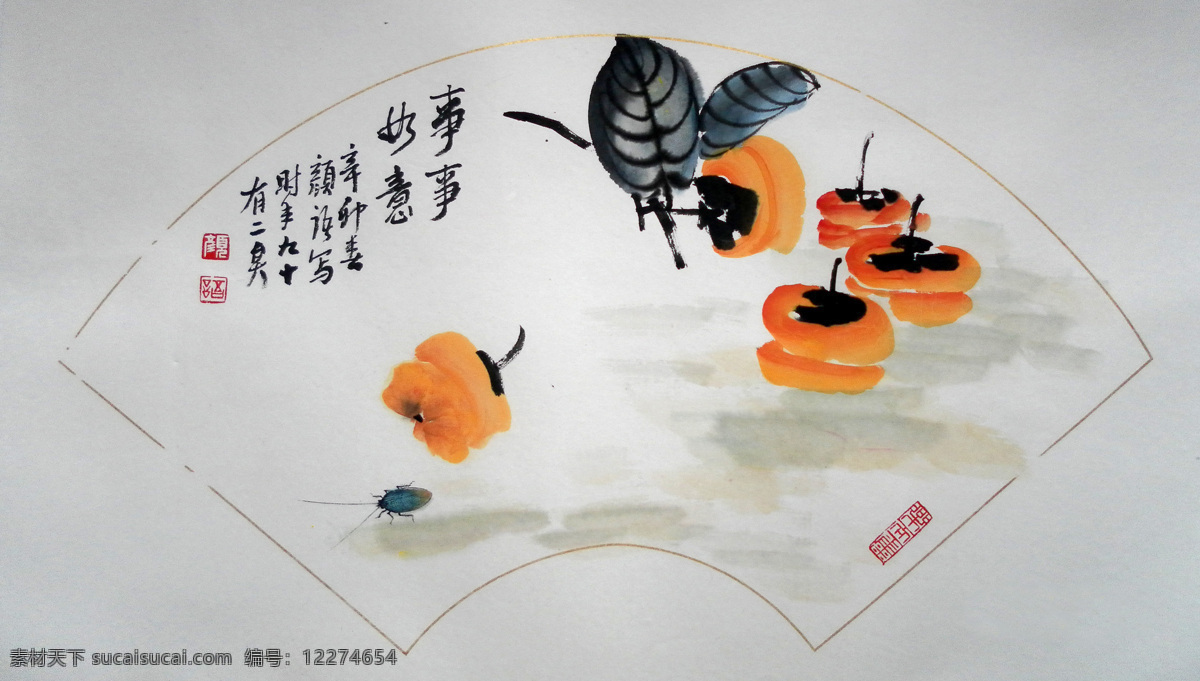 事事
如意
辛卯春
顔語写
时年九十
有二矣
顔
語
素材天下 sucaisucai.com 编号：12274654